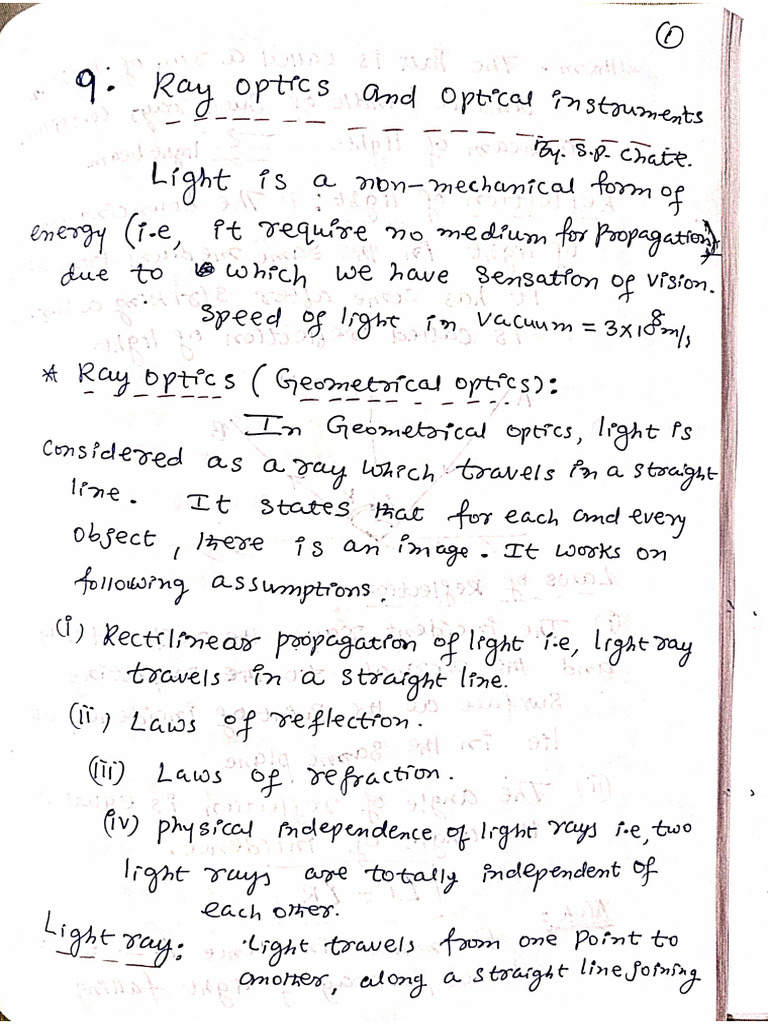 ①
9: Ray optics and optical instruments
By. S.P. Chate.
Light is a non-mechanical form of
energy (i.e, it require no medium for propagation)
due to which we have sensation of vision.
Speed of light in vacuum = 3×10⁸ m/s
* Ray optics (Geometrical optics):
In Geometrical optics, light is
considered as a ray which travels in a straight
line. It states that for each and every
object, there is an image. It works on
following assumptions.
(i) Rectilinear propagation of light i.e, light ray
travels in a straight line.
(ii) Laws of reflection.
(iii) Laws of refraction.
(iv) physical independence of light rays i.e, two
light rays are totally independent of
each other.
Light ray: Light travels from one point to
another, along a straight line joining